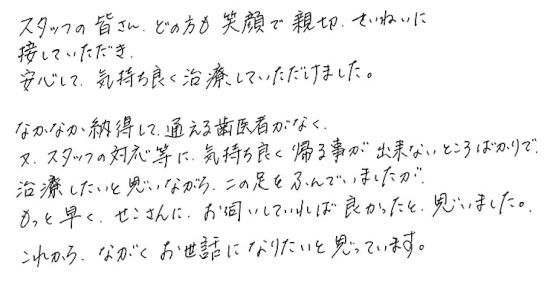 スタッフの皆さん、どの方も笑顔で親切、ていねいに
接していただき、
安心して、気持ち良く治療していただけました。
なかなか納得して、通える歯医者がなく、
又、スタッフの対応等に、気持ち良く帰る事が出来ないところばかりで、
治療したいと思いながら、二の足をふんでいましたが、
もっと早く、せこさんに、お伺いしていれば良かったと、思いました。
これから、ながくお世話になりたいと思っています。